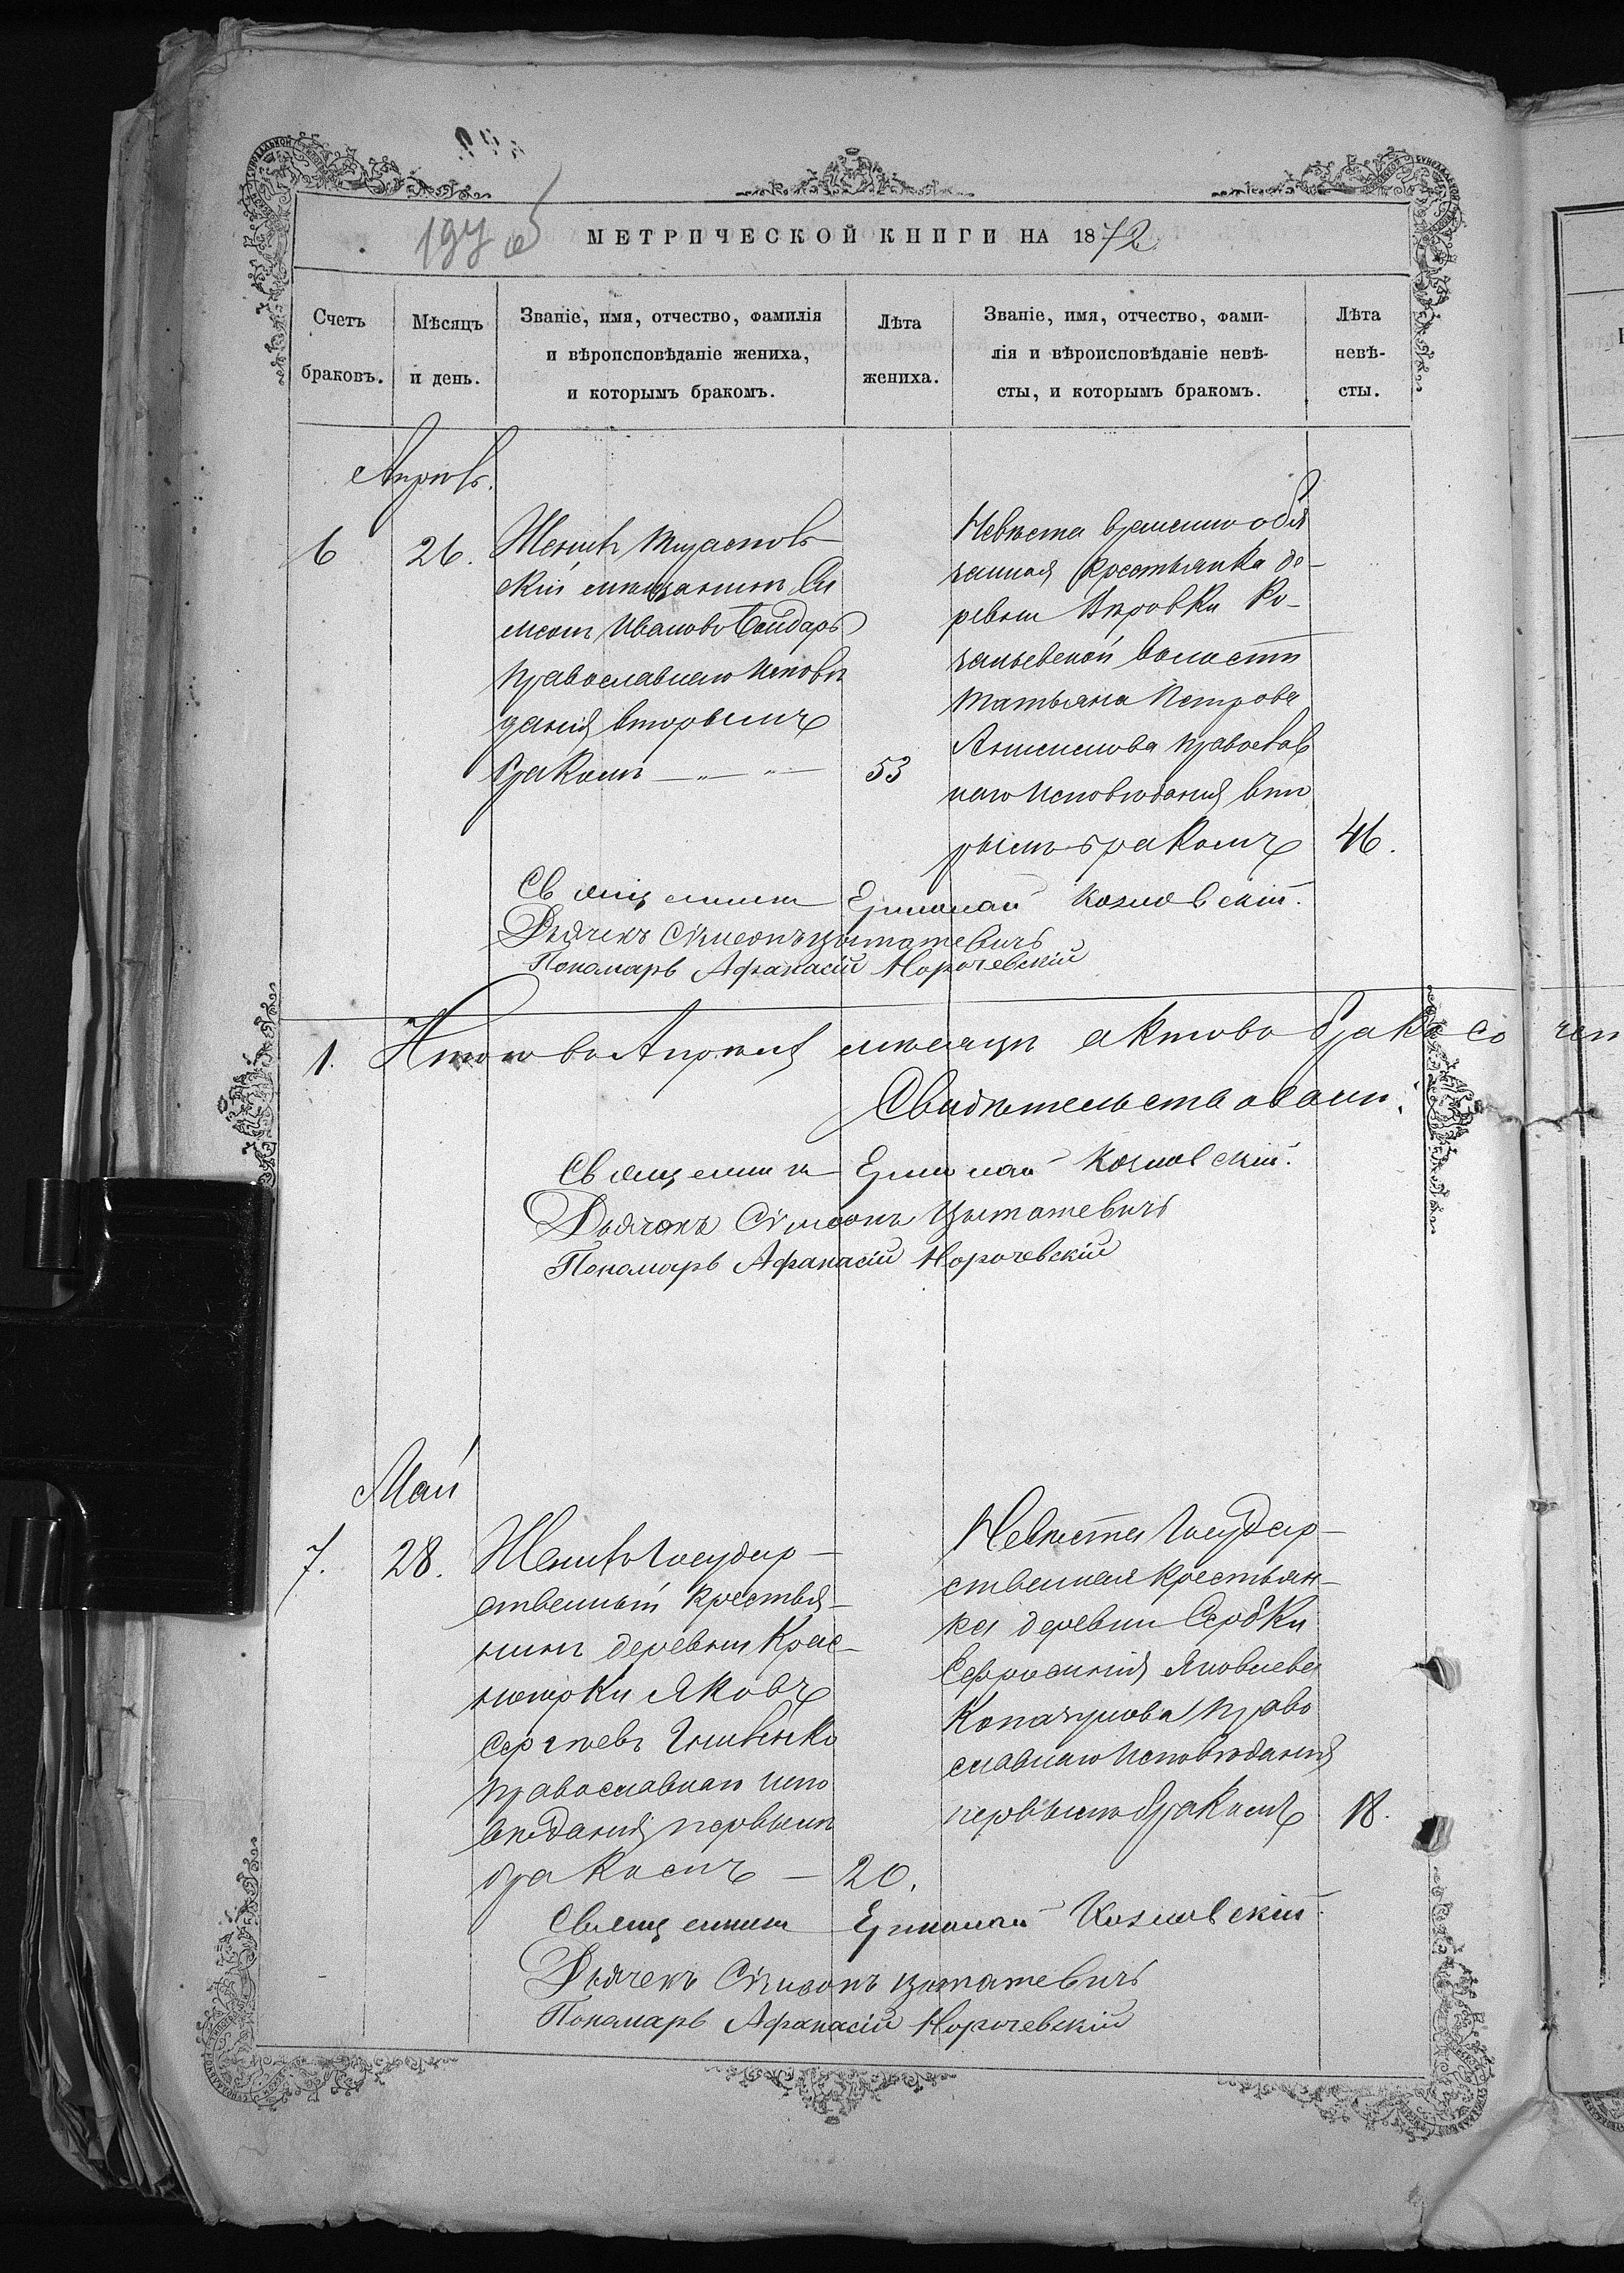 197 об
МЕТРИЧЕСКОЙ КНИГИ НА 1872
Счетъ браковъ.
Мѣсяцъ и день.
Званіе, имя, отчество, фамилія
и вѣроисповѣданіе жениха,
и которымъ бракомъ.
Лѣта жениха.
Званіе, имя, отчество, фами-
лія и вѣроисповѣданіе невѣ-
сты, и которымъ бракомъ.
Лѣта невѣ-
сты.
Апрѣль.
6
26.
Женихъ
скій мещанинъ
Ивановъ Бойдарь
православнаго исповѣ
данія вторымъ
бракомъ
53
Невѣста временно обя
занная крестьянка де-
ревни
волости
Татьяна Петрова
Анисимова православ
наго исповѣданія вто
рымъ бракомъ
46.
Священникъ Ермолай Козловскій.
Дьячекъ Сѵмеонъ
Пономарь Афанасій Норочевскій
1.
Итого въ Апрѣлѣ месяцѣ актовъ брако со чет
Свидѣтельствовали:
Священникъ Ермолай Козловскій.
Дьячокъ Сѵмеонъ
Пономарь Афанасій Норочевскій
Май
7.
28.
Женихъ государ-
ственный крестья-
нинъ деревни Крас-
Яковъ
Сергѣевъ
православнаго испо
вѣданія первымъ
бракомъ
20.
Невѣста государ-
ственная крестьян-
ка деревни Сербки
Ефросинія Яковлева
право
славнаго исповѣданія
первымъ бракомъ
18.
Священникъ Ермолай Козловскій
Дьячекъ Сѵмеонъ
Пономарь Афанасій Норочевскій